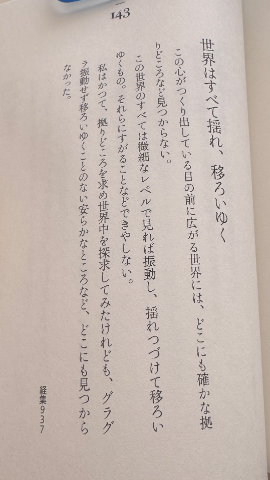 143
世界はすべて揺れ、移ろいゆく
この心がつくり出している目の前に広がる世界には、どこにも確かな拠
りどころなど見つからない。
この世界のすべては微細なレベルで見れば振動し、揺れつづけて移ろい
ゆくもの。それらにすがることなどできやしない。
私はかつて、拠りどころを求め世界中を探求してみたけれども、グラグ
ラ振動せず移ろいゆくことのない安らかなところなど、どこにも見つから
なかった。
経集937